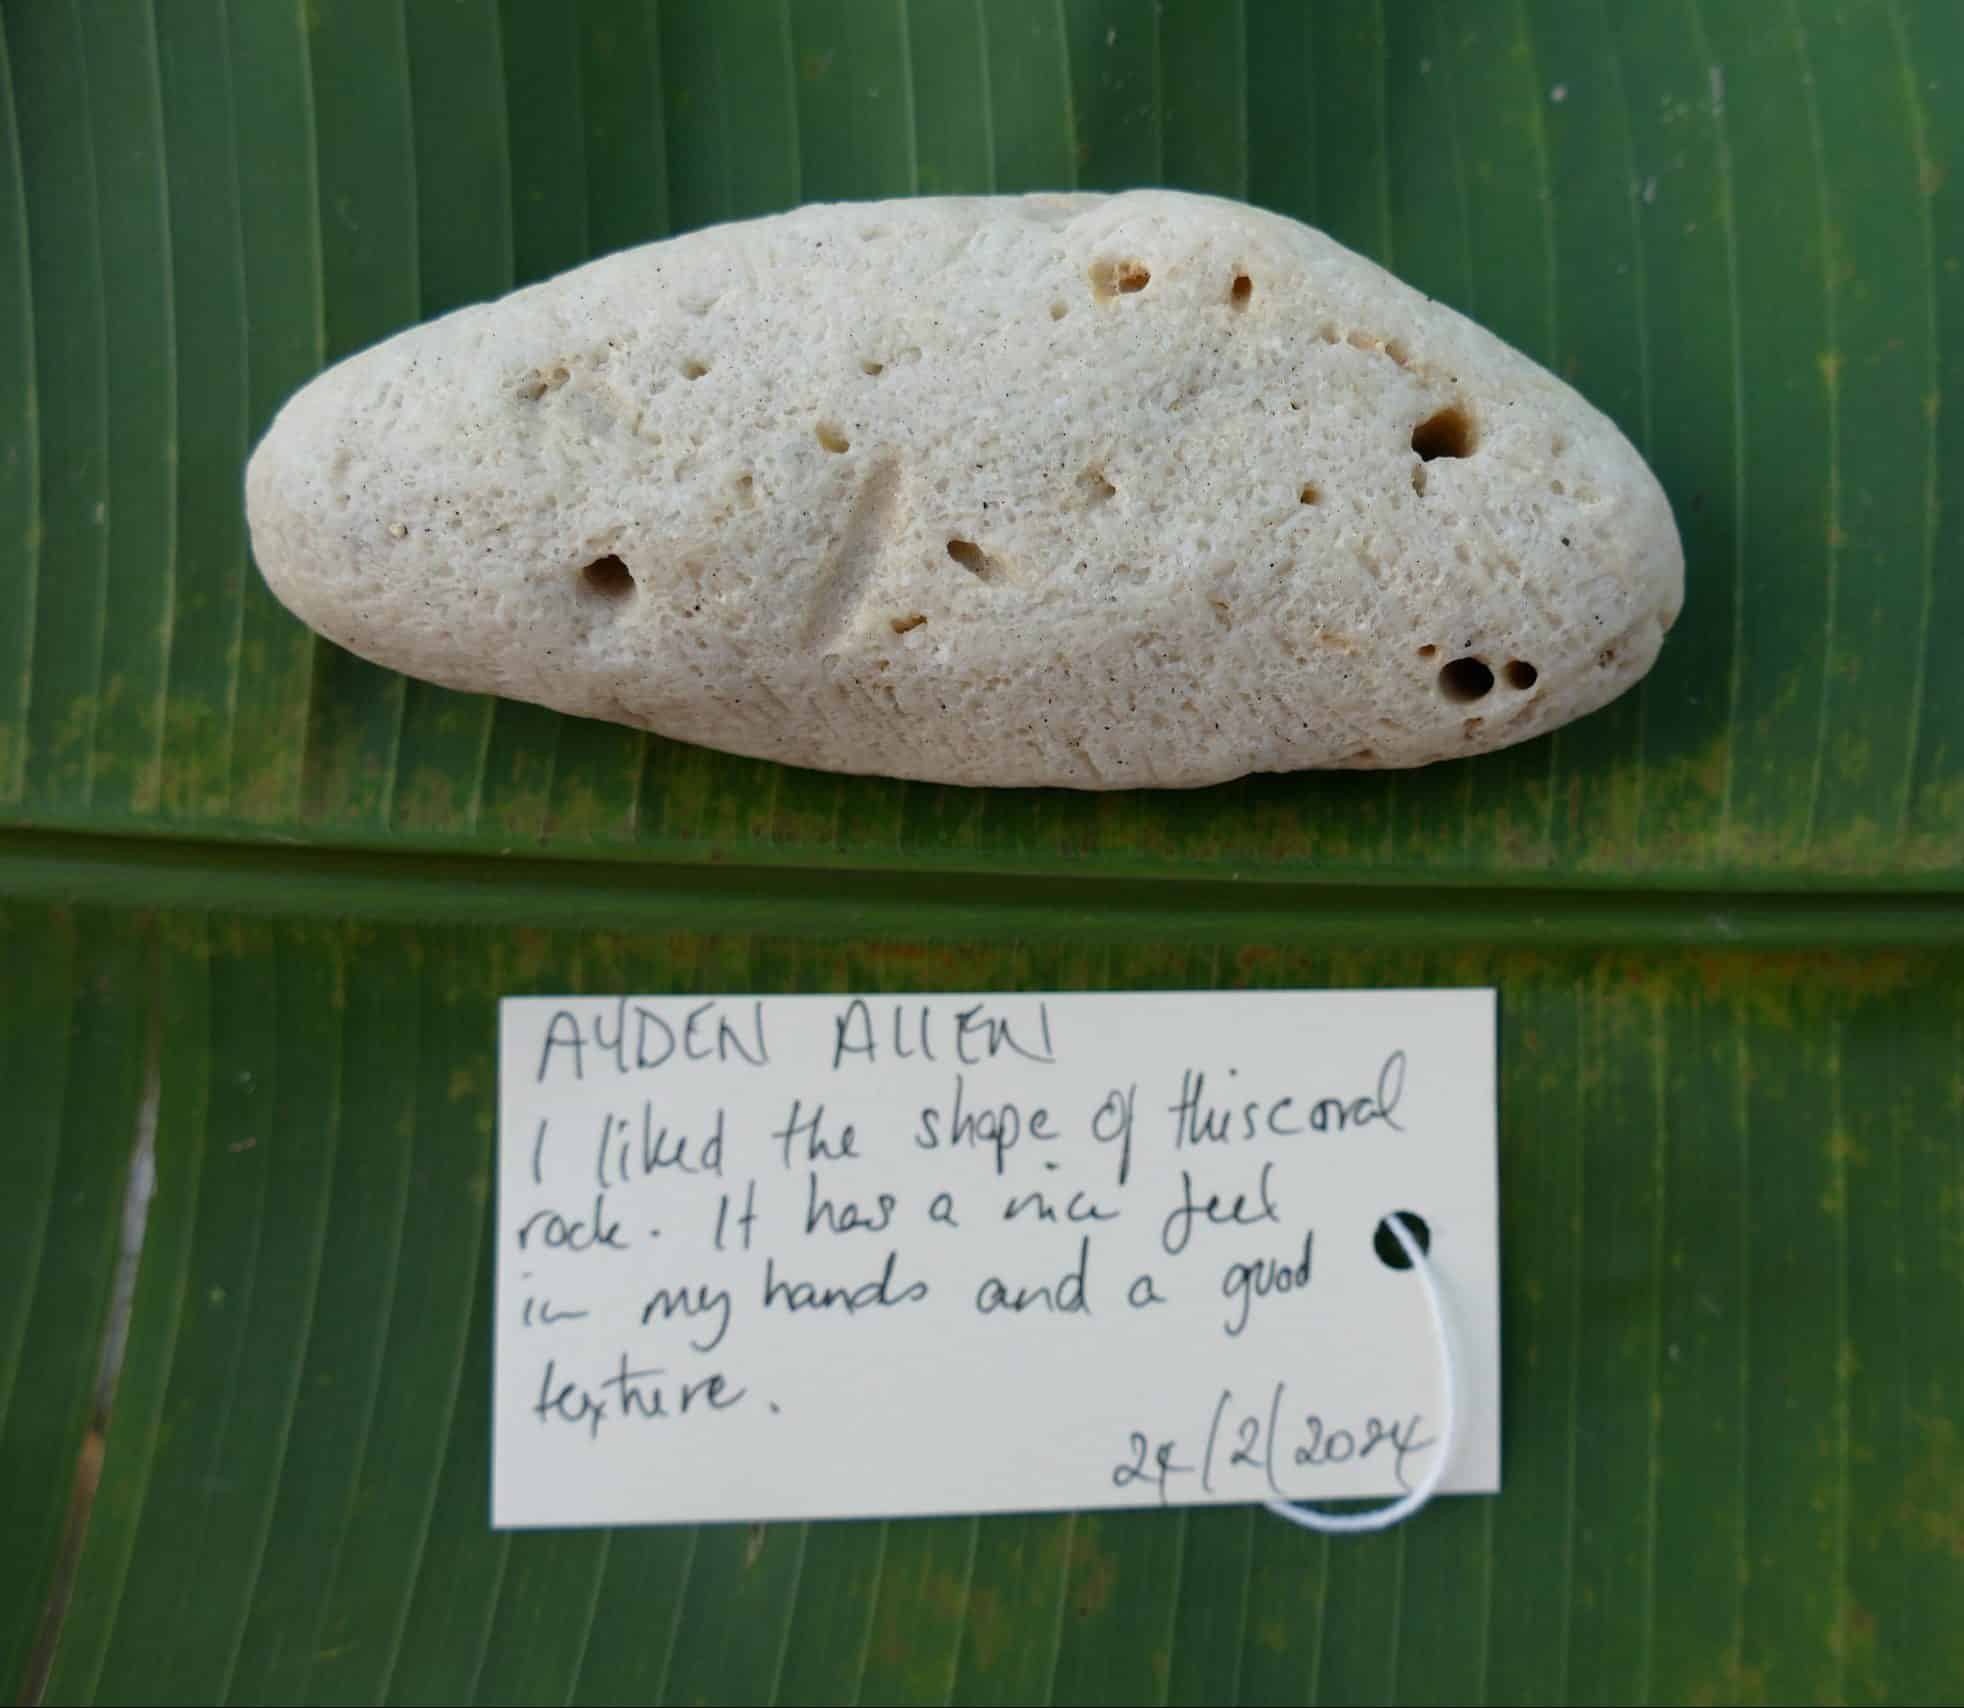 AYDEN AllEN
I liked the shape of this coral
rock. It has a nice feel
in my hands and a good
texture.
24/2/2024